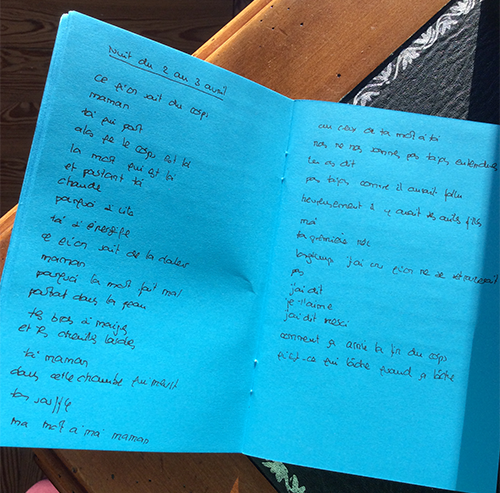 Nuit du 2 au 3 avril
ce qu'on sait du corps
maman
toi qui pars
alors que le corps est là
la mort qui est là
et pourtant toi
chaude
pourquoi si vite
toi si énergie
ce qu'on sait de la douleur
maman
pourquoi la mort fait mal
partout dans la peau
tes bras si maigres
et tes cheveux
toi maman
dans cette chambre qui meurt
ton souffle
ma mort à moi maman
au creux de ta mort à toi
nous ne nous sommes pas toujours entendues
tu as dit
pas toujours comme il aurait fallu
heureusement il y avait tes autres filles
moi
ta première née
longtemps j'ai cru qu'on ne se retrouverait
pas
j'ai dit
je t'aime
j'ai dit merci
comment ça arrive la fin du corps
qu'est-ce qui lâche quand ça lâche